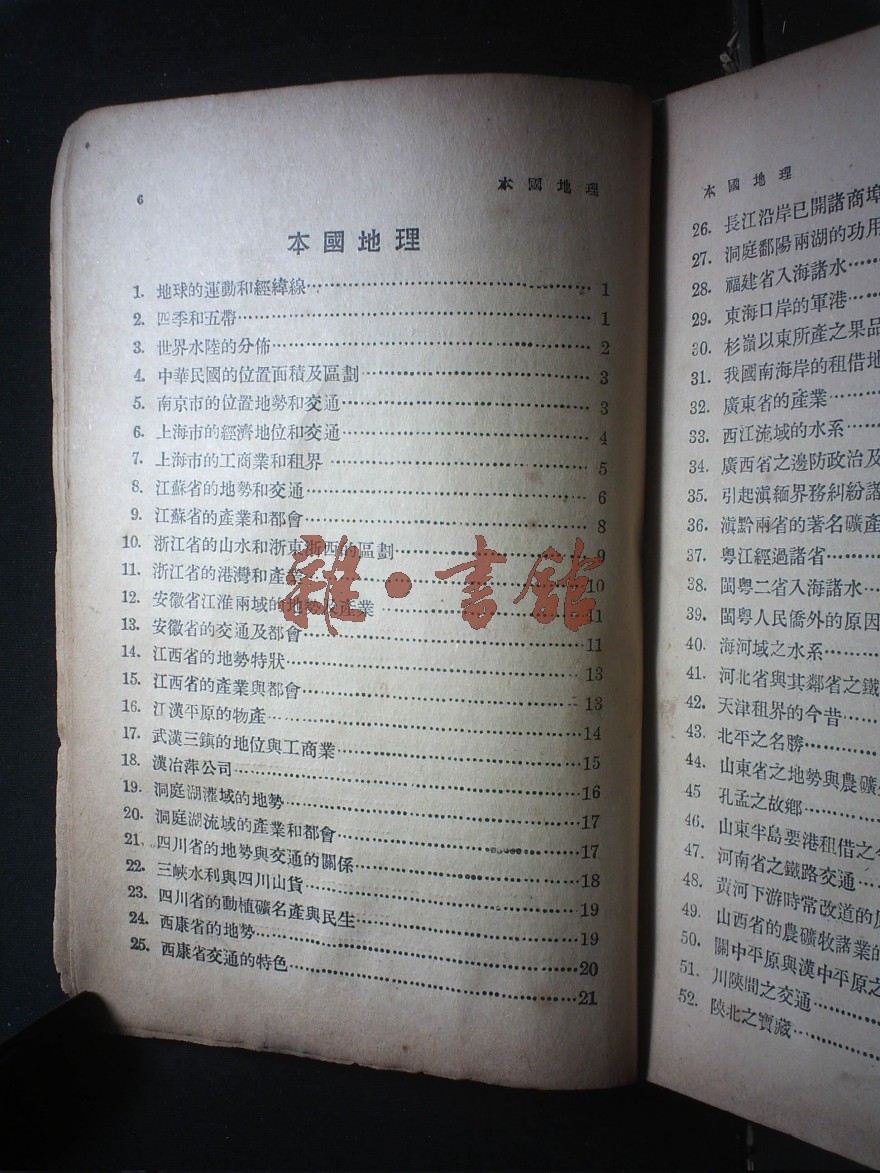 6 本國地理
本國地理
1. 地球的運動和經緯線 1
2. 四季和五帶 1
3. 世界水陸的分佈 2
4. 中華民國的位置面積及區劃 3
5. 南京市的位置地勢和交通 3
6. 上海市的經濟地位和交通 4
7. 上海市的工商業和租界 5
8. 江蘇省的地勢和交通 6
9. 江蘇省的產業和都會 8
10. 浙江省的山水和浙東浙西的區劃 9
11. 浙江省的港灣和產業 10
12. 安徽省江淮兩域的地勢及產業 11
13. 安徽省的交通及都會 11
14. 江西省的地勢特狀 13
15. 江西省的產業與都會 13
16. 江漢平原的物產 14
17. 武漢三鎮的地位與工商業 15
18. 漢冶萍公司 16
19. 洞庭湖灌域的地勢 17
20. 洞庭湖流域的產業和都會 17
21. 四川省的地勢與交通的關係 18
22. 三峽水利與四川山貨 19
23. 四川省的動植礦名產與民生 19
24. 西康省的地勢 20
25. 西康省交通的特色 21
雜·書館
本國地理
26. 長江沿岸已開諸商埠
27. 洞庭鄱陽兩湖的功用
28. 福建省入海諸水
29. 東海口岸的軍港
30. 杉嶺以東所產之果品
31. 我國南海岸的租借地
32. 廣東省的產業
33. 西江流域的水系
34. 廣西省之邊防政治及
35. 引起滇緬界務糾紛諸
36. 滇黔兩省的著名礦產
37. 粤江經過諸省
38. 閩粤二省入海諸水
39. 閩粤人民僑外的原因
40. 海河域之水系
41. 河北省與其鄰省之鐵
42. 天津租界的今昔
43. 北平之名勝
44. 山東省之地勢與農礦
45 孔孟之故鄉
46. 山東半島要港租借之
47. 河南省之鐵路交通
48. 黃河下游時常改道的
49. 山西省的農礦牧諸業的
50. 關中平原與漢中平原之
51. 川陝間之交通
52. 陝北之寶藏